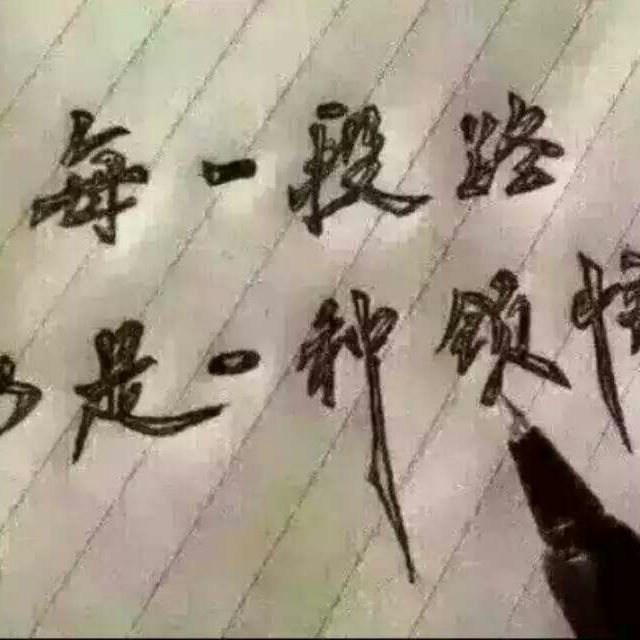 每一段路
是一种领悟